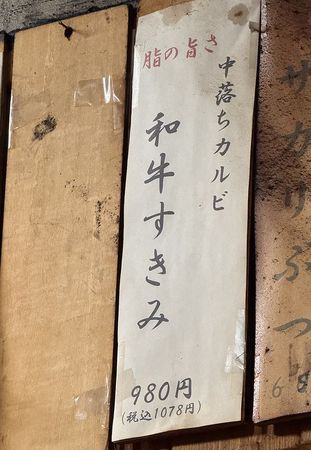 脂の旨さ
中落ちカルビ
和牛すきみ
980円
(税込1078円)
サカリぶつ
68